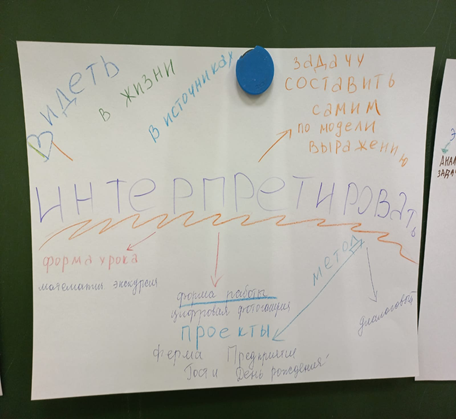 Видеть
в жизни
в источниках
задачу
составить
самим
по модели
выражению
интерпретировать
форма урока
математич экскурсия
форма работы
цифровая фотография
метод
диалоговый
проекты
Ферма Предприятие
Гости День рождения